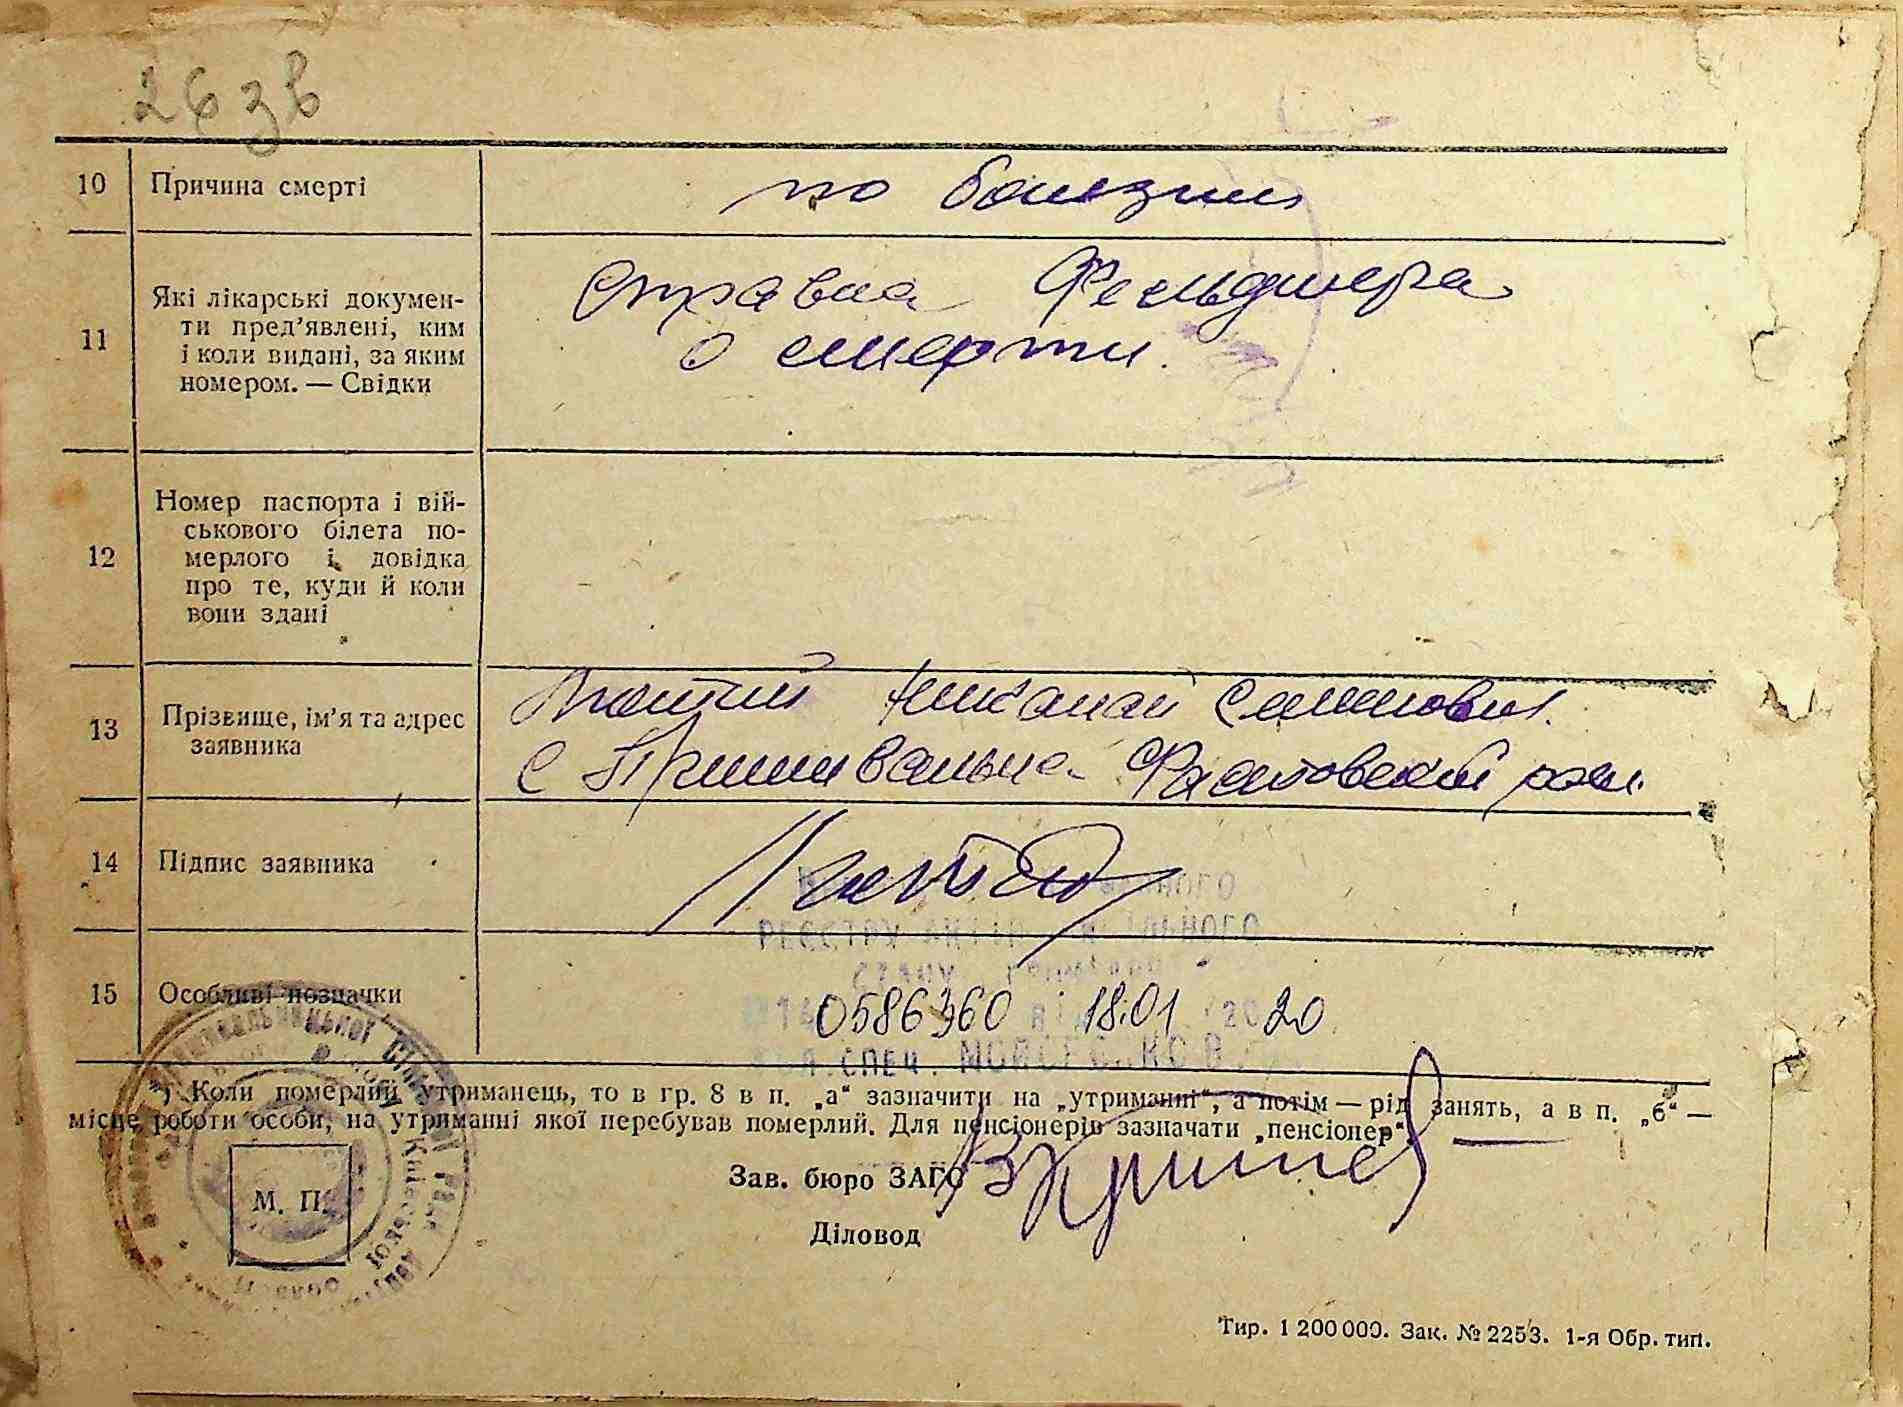 26 зв
10 Причина смерті по болезни
11 Які лікарські докумен-
ти пред’явлені, ким
і коли видані, за яким
номером. — Свідки
Справка Фельдшера
о смерти.
12 Номер паспорта і вій-
ськового білета по-
мерлого і довідка
про те, куди й коли
вони здані
13 Прізвище, ім’я та адрес
заявника
Семенович.
с
14 Підпис заявника
РЕЄСТРУ АКТІВ
СТАНУ
15 Особливі позначки
0586360 18.01 20 20
СПЕЦ.
*) Коли померлий утриманець, то в гр. 8 в п. „а“ зазначити на „утриманні“, а потім — рід занять, а в п. „б“ —
місце роботи особи, на утриманні якої перебував померлий. Для пенсіонерів зазначати „пенсіонер“.
Зав. бюро ЗАГС
М. П.
Діловод
Київської
Тир. 1 200 000. Зак. № 2253. 1-я Обр. тип.